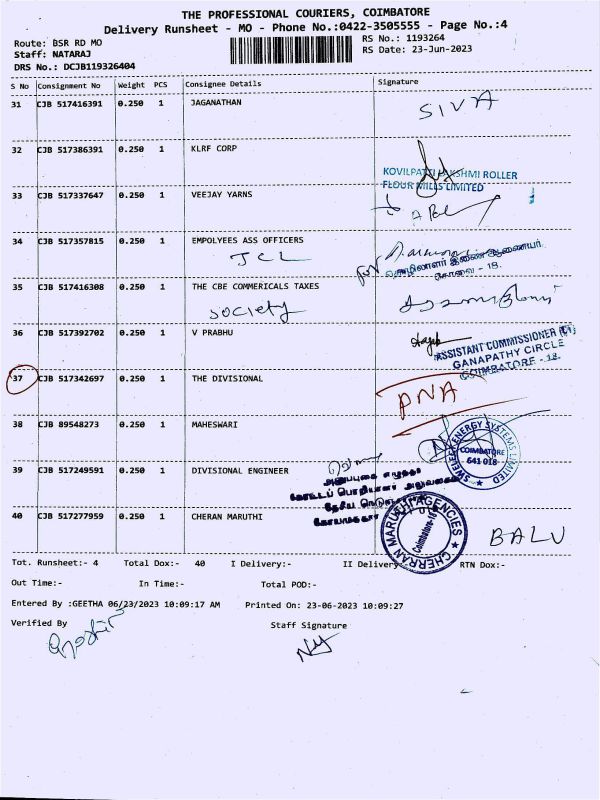 THE PROFESSIONAL COURIERS, COIMBATORE
Delivery Runsheet - MO - Phone No.:0422-3505555 - Page No.:4
Route: BSR RD MO
RS No.: 1193264
Staff: NATARAJ
RS Date: 23-Jun-2023
DRS No.: DCJB119326404
S No Consignment No Weight PCS Consignee Details Signature
31 CJB 517416391 0.250 1 JAGANATHAN SIVA
32 CJB 517386391 0.250 1 KLRF CORP
KOVILPATTI LAKSHMI ROLLER
FLOUR MILLS LIMITED
33 CJB 517337647 0.250 1 VEEJAY YARNS
34 CJB 517357815 0.250 1 EMPOLYEES ASS OFFICERS
JCL
for
தொழிலாளர் இணை ஆணையர்
கோவை - 18.
35 CJB 517416308 0.250 1 THE CBE COMMERICALS TAXES
society
36 CJB 517392702 0.250 1 V PRABHU
ASSISTANT COMMISSIONER
GANAPATHY CIRCLE
COIMBATORE - 18.
37 CJB 517342697 0.250 1 THE DIVISIONAL PNA
38 CJB 89548273 0.250 1 MAHESWARI
ENERGY SYSTEMS LIMITED
COIMBATORE
641 018
39 CJB 517249591 0.250 1 DIVISIONAL ENGINEER
கோட்டப் பொறியாளர் அலுவலகம்
40 CJB 517277959 0.250 1 CHERAN MARUTHI BALU
CHERRAN MARUTI AGENCIES
Coimbatore-18
Tot. Runsheet:- 4 Total Dox:- 40 I Delivery:- II Delivery RTN Dox:-
Out Time:- In Time:- Total POD:-
Entered By :GEETHA 06/23/2023 10:09:17 AM Printed On: 23-06-2023 10:09:27
Verified By Staff Signature